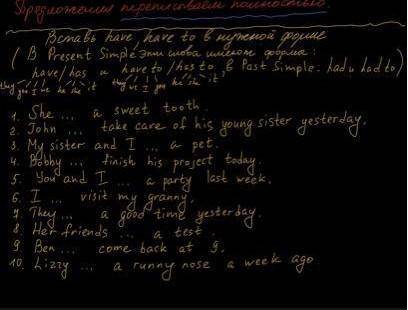 Предложения переписываем полностью.
Вставь have, have to в нужной форме
( В Present Simple эти слова имеют форма:
have/has и have to/has to, в Past Simple: had и had to)
they you I we he she it they we I you he she it
1. She ... a sweet tooth.
2. John ... take care of his young sister yesterday.
3. My sister and I ... a pet.
4. Bobby ... finish his project today.
5. You and I ... a party last week.
6. I ... visit my granny.
7. They ... a good time yesterday.
8. Her friends ... a test.
9. Ben ... come back at 9.
10. Lizzy ... a runny nose a week ago